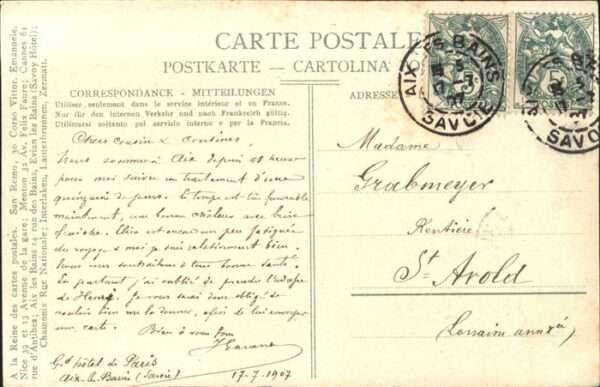 A la Reine des cartes postales. San Remo, 30 Corso Vittor. Emanuele,
Nice 39 et 13 Avenue de la gare; Menton 32 Av. Felix Faure; Cannes 61
rue d'Antibes; Aix les Bains 14 rue des Bains, Evian les Bains (Savoy Hôtel);
Chamonix Rue Nationale; Interlaken, Lauterbrunnen, Zermatt.
CARTE POSTALE
POSTKARTE — CARTOLINA POS
CORRESPONDANCE - MITTEILUNGEN
Utiliser seulement dans le service intérieur et en France.
Nur für den internen Verkehr und nach Frankreich gültig.
Utilizzarsi soltanto pel servizio interno e per la Francia.
Chers cousin & cousines,
Nous sommes à Aix depuis et
pour moi suivre un traitement d'une
quinzaine de jours. Le temps est favorable
maintenant, une bonne chaleur avec brise
fraiche. Elise est encore un peu fatiguée
du voyage & moi je suis relativement bien.
Nous vous souhaitons à tous bonne santé.
En partant j'ai oublié de prendre l'adresse
de Henri. Je vous serai donc obligé de
vouloir bien me la donner, afin de lui envoyer
une carte.
Bien à vous tous
Gd hôtel de Paris
Aix les Bains (Savoie) 17-7-1907
ADRESSE
Madame
Grabmeyer
Rentière
St Avold
(Lorraine annexée)
AIX-LES-BAINS
SAVOIE
5
5
POSTES
SAVOIE